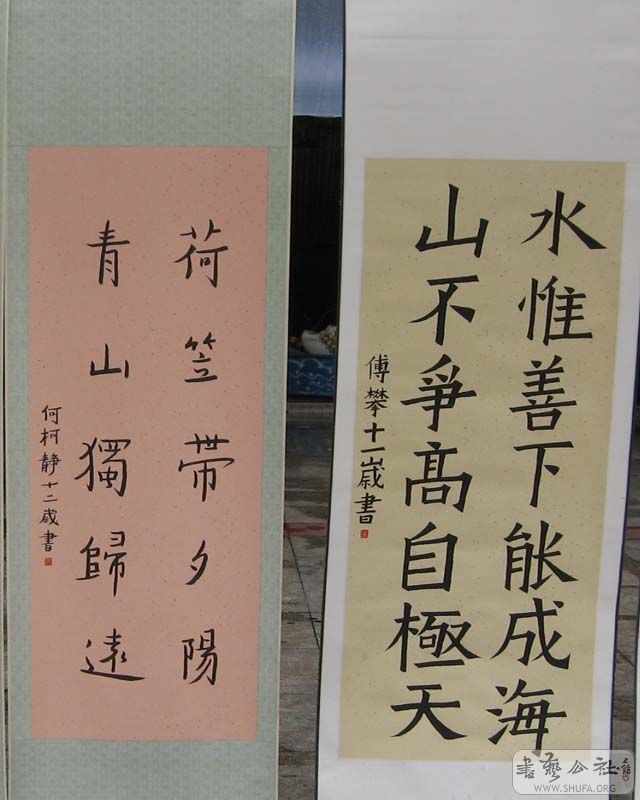 水惟善下能成海
山不爭高自極天
傅攀十一歲書
荷笠帶夕陽
青山獨歸遠
何柯靜十二歲書
書藝公社
WWW.SHUFA.ORG